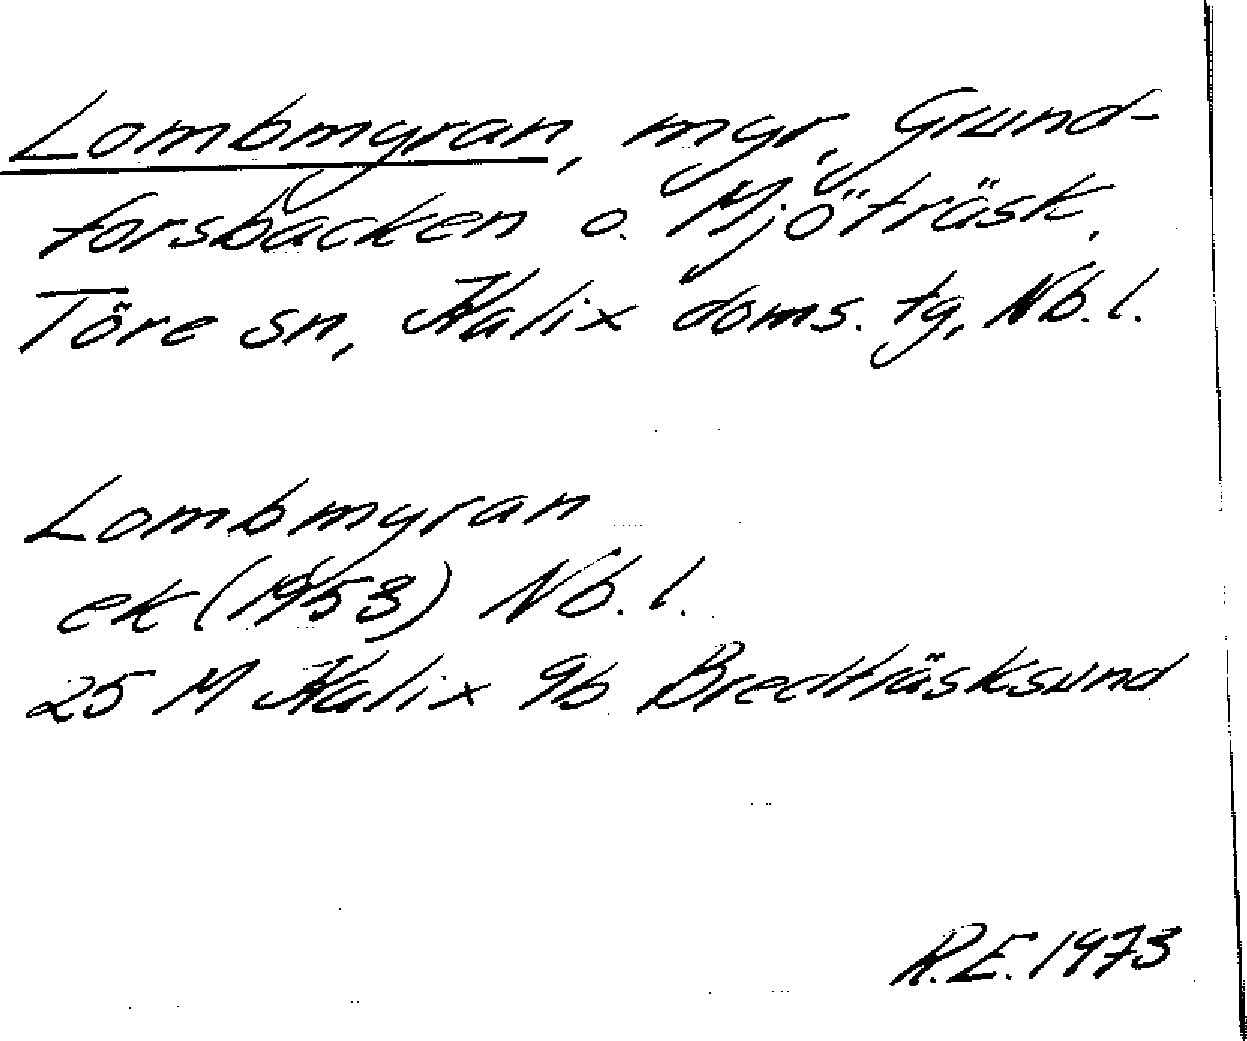 Lombmyran, myr, Grund-
forsbacken o. Mjöträsk,
Töre sn, Kalix doms. tg, Nb. l.
Lombmyran
ek (1953) Nb. l.
25 M Kalix 9b Bredträsksund
R.E. 1973